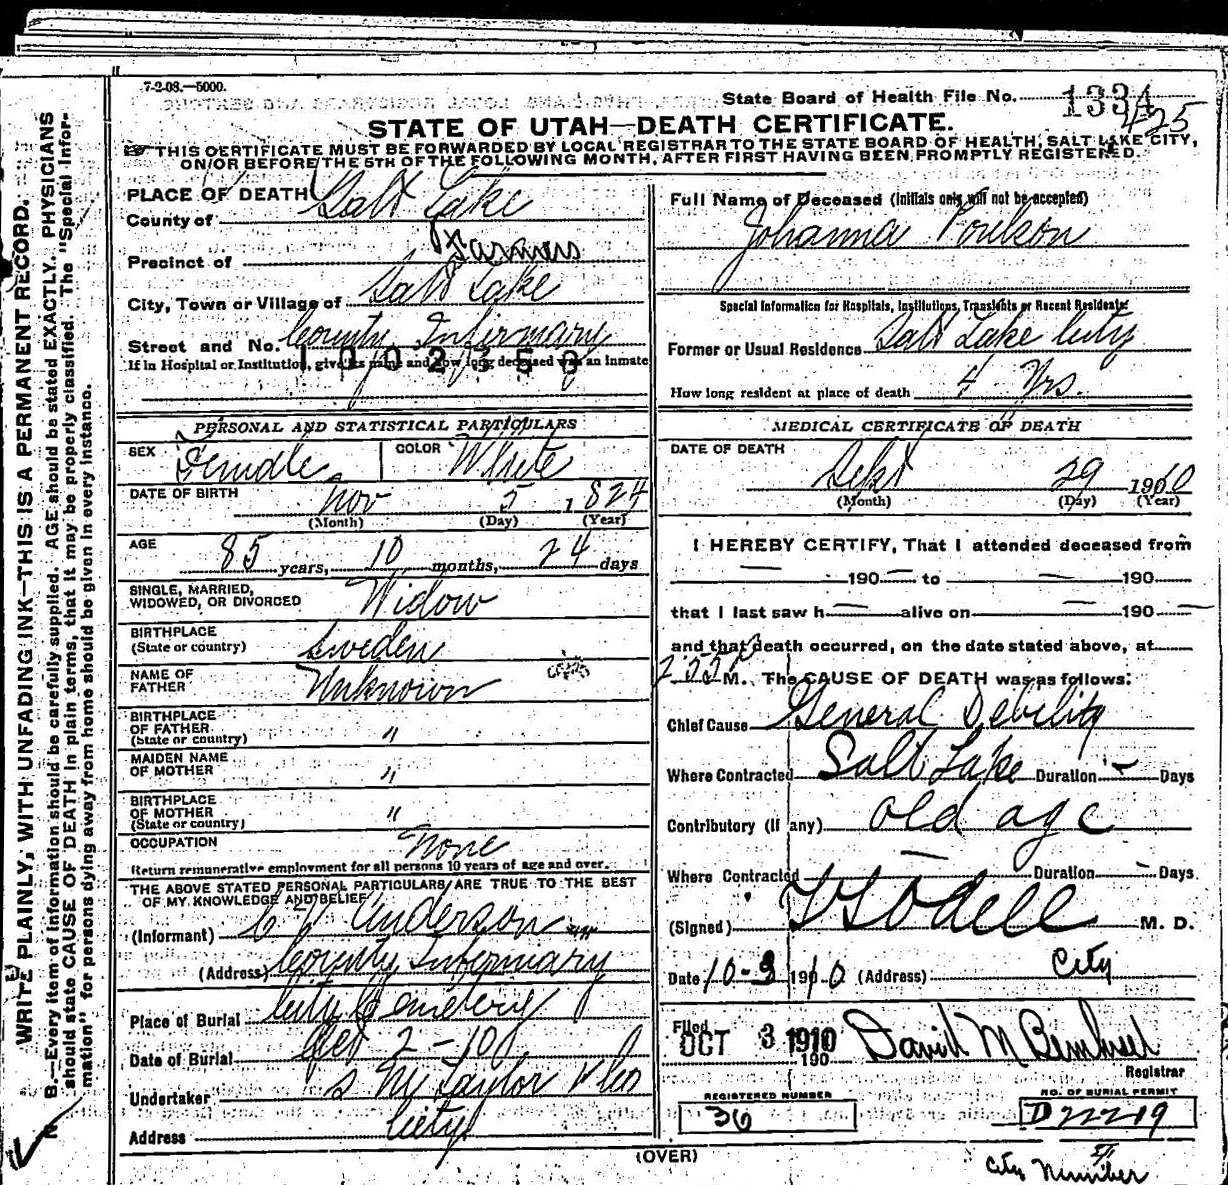 7-2-08.—5000.
State Board of Health File No. 1334
425
STATE OF UTAH—DEATH CERTIFICATE.
THIS CERTIFICATE MUST BE FORWARDED BY LOCAL REGISTRAR TO THE STATE BOARD OF HEALTH, SALT LAKE CITY,
ON/OR BEFORE THE 5TH OF THE FOLLOWING MONTH, AFTER FIRST HAVING BEEN PROMPTLY REGISTERED.
WRITE PLAINLY, WITH UNFADING INK—THIS IS A PERMANENT RECORD.
N. B.—Every item of information should be carefully supplied. AGE should be stated EXACTLY. PHYSICIANS
should state CAUSE OF DEATH in plain terms, that it may be properly classified. The "Special Infor-
mation" for persons dying away from home should be given in every instance.
PLACE OF DEATH
County of Salt Lake
Precinct of Farmers
City, Town or Village of Salt Lake
Street and No. County Infirmary
1002350
If in Hospital or Institution, give its name and how long deceased was an inmate
PERSONAL AND STATISTICAL PARTICULARS
SEX Female COLOR White
DATE OF BIRTH Nov 5 1824
(Month) (Day) (Year)
AGE 85 years, 10 months, 24 days
SINGLE, MARRIED,
WIDOWED, OR DIVORCED Widow
BIRTHPLACE
(State or country) Sweden
NAME OF
FATHER Unknown
BIRTHPLACE
OF FATHER
(State or country) "
MAIDEN NAME
OF MOTHER "
BIRTHPLACE
OF MOTHER
(State or country) "
OCCUPATION None
Return remunerative employment for all persons 10 years of age and over.
THE ABOVE STATED PERSONAL PARTICULARS ARE TRUE TO THE BEST
OF MY KNOWLEDGE AND BELIEF
(Informant) Anderson
(Address) County Infirmary
Place of Burial City Cemetery
Date of Burial Oct 2-10
Undertaker S M Taylor & Co
Address City
Full Name of Deceased (Initials only will not be accepted)
Johanna Poulson
Special Information for Hospitals, Institutions, Transients or Recent Residents:
Former or Usual Residence Salt Lake City
How long resident at place of death 4 Yrs.
MEDICAL CERTIFICATE OF DEATH
DATE OF DEATH
Sept 29 1910
(Month) (Day) (Year)
I HEREBY CERTIFY, That I attended deceased from
— 190— to — 190
that I last saw h— alive on — 190—
and that death occurred, on the date stated above, at
2:55 M. The CAUSE OF DEATH was as follows:
Chief Cause General Debility
Where Contracted Salt Lake Duration — Days
Contributory (If any) old age
Where Contracted — Duration — Days
(Signed) Odell M. D.
Date 10-3 1910 (Address) City
Filed OCT 3 1910 190 David M
Registrar
REGISTERED NUMBER
36
NO. OF BURIAL PERMIT
D22219
(OVER)
City Number